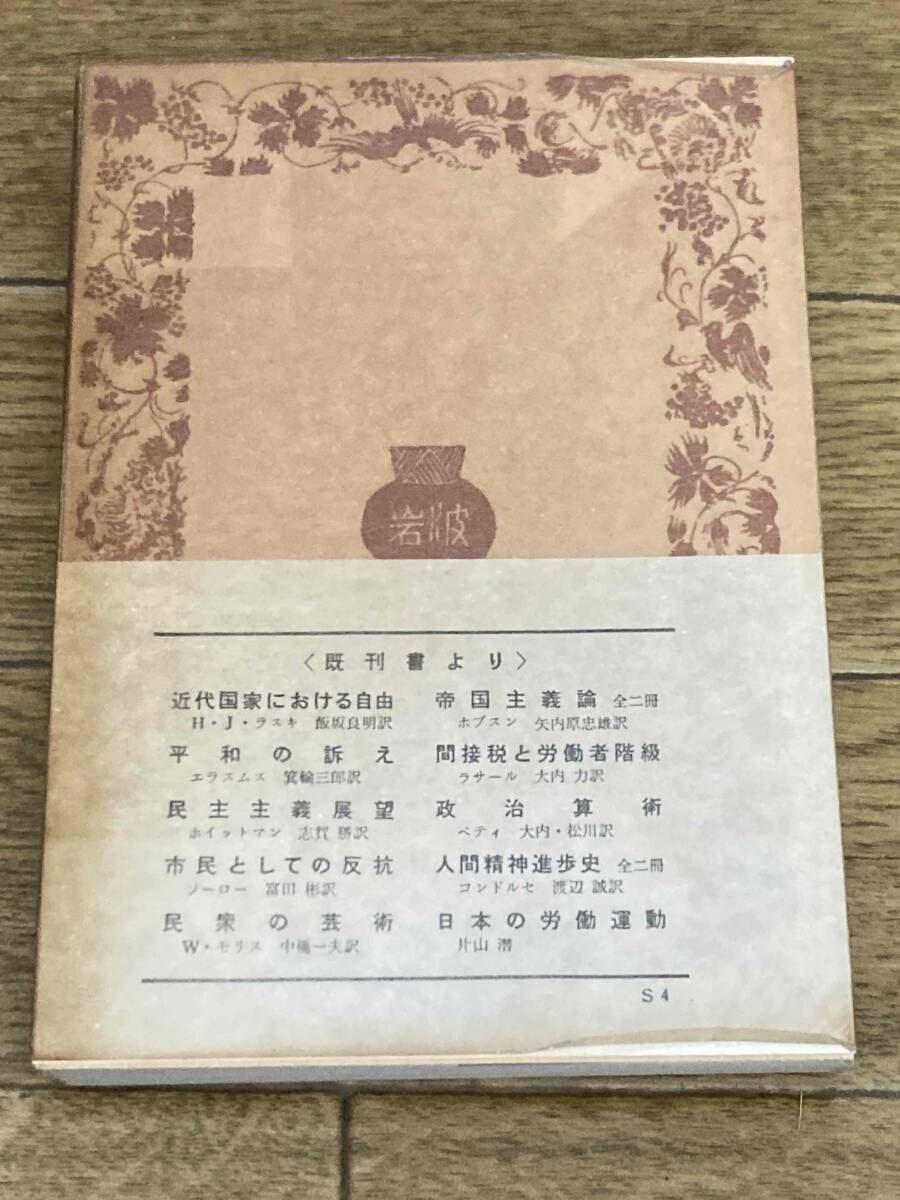 岩波
〈既刊書より〉
近代国家における自由
H・J・ラスキ 飯坂良明訳
平和の訴え
エラスムス 箕輪三郎訳
民主主義展望
ホイットマン 志賀 勝訳
市民としての反抗
ソーロー 富田 彬訳
民衆の芸術
W・モリス 中橋一夫訳
帝国主義論 全二冊
ホブスン 矢内原忠雄訳
間接税と労働者階級
ラサール 大内 力訳
政治算術
ペティ 大内・松川訳
人間精神進歩史 全二冊
コンドルセ 渡辺 誠訳
日本の労働運動
片山 潜
S 4